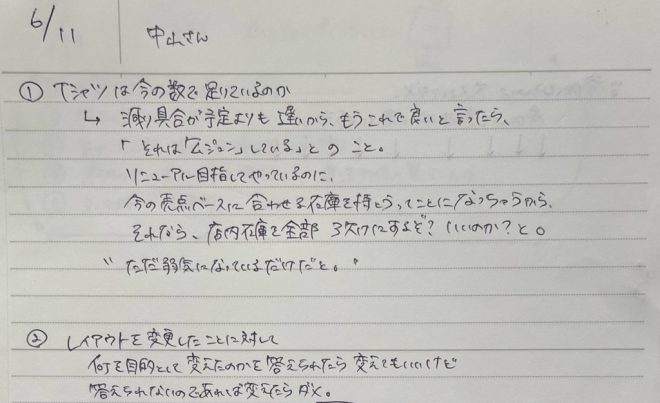 6/11 中山さん
① Tシャツは今の数で足りているのか
↳ 減り具合が予定よりも遅いから、もうこれで良いと言ったら、
「それは「ムジュン」している」とのこと。
リニューアル目指してやっているのに、
今の売点ベースに合わせる在庫を持とうってことになっちゃうから、
それなら、店内在庫を全部 3欠けにするぞ?いいのか?と。
"ただ弱気になっているだけだと。"
② レイアウトを変更したことに対して
何を目的として変えたのかを答えられたら変えてもいいけど
答えられないのであれば変えたらダメ。